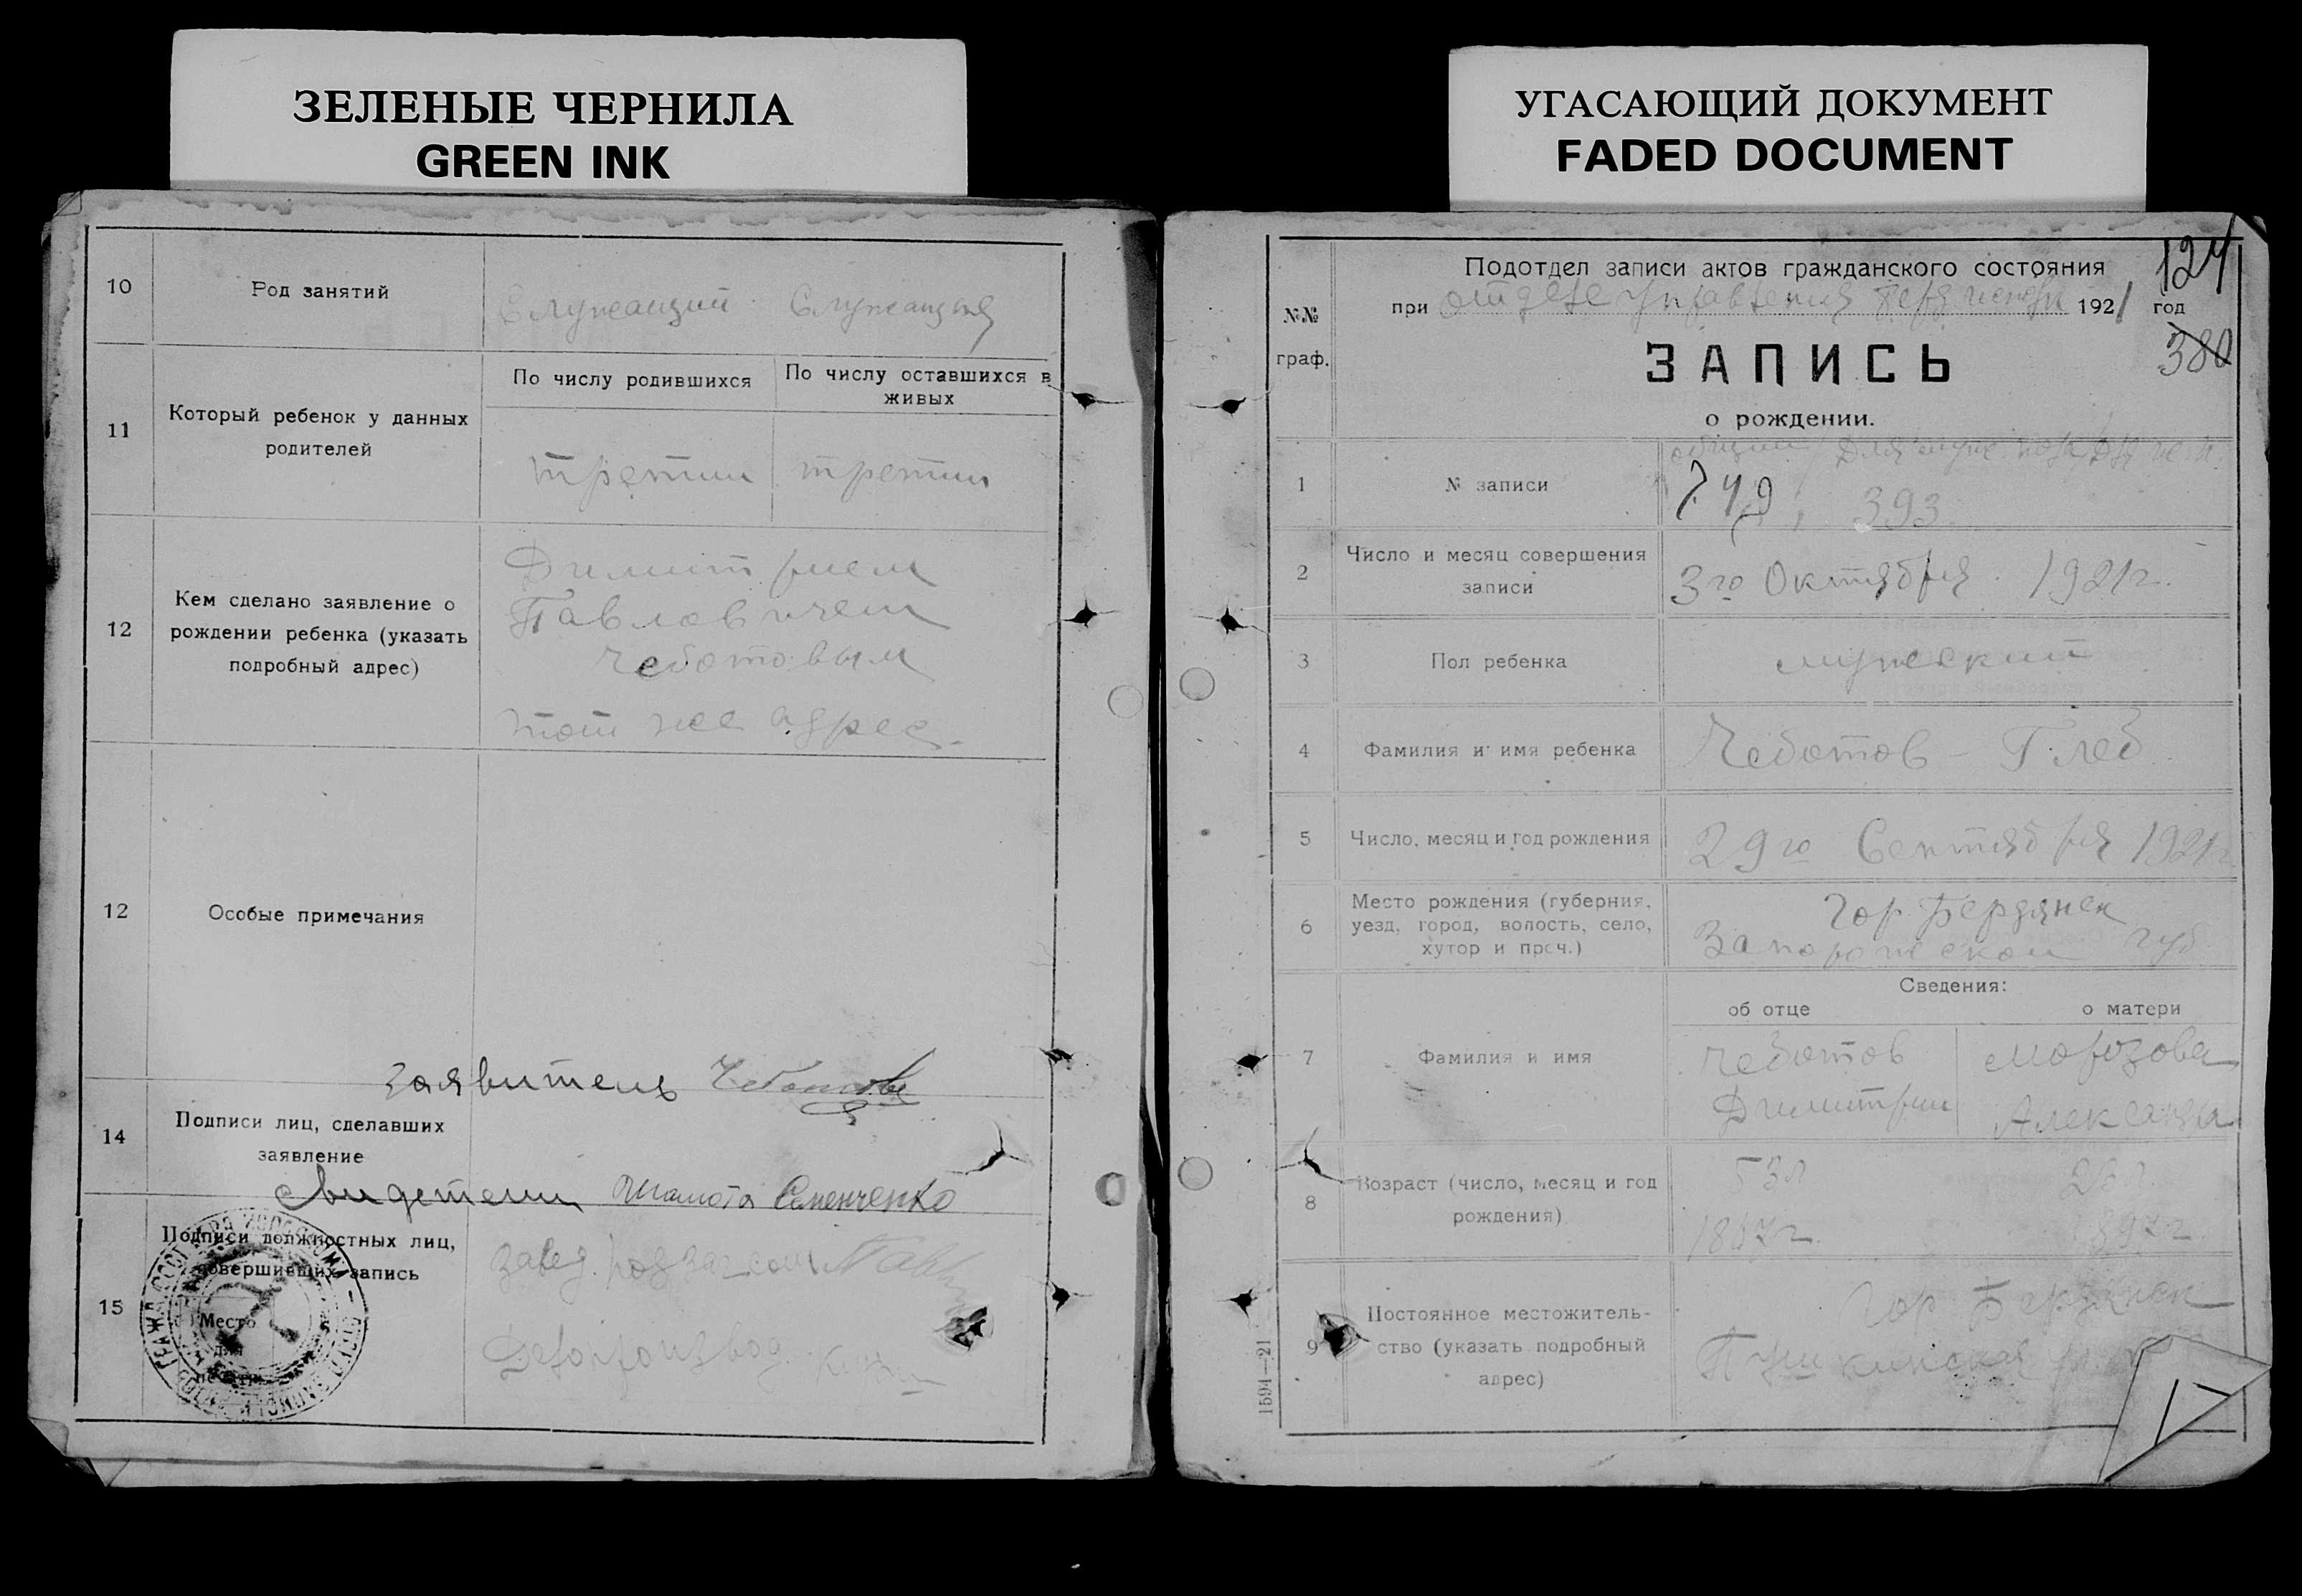 ЗЕЛЕНЫЕ ЧЕРНИЛА
GREEN INK
УГАСАЮЩИЙ ДОКУМЕНТ
FADED DOCUMENT
10 Род занятий Служащий Служащая
11 Который ребенок у данных родителей
По числу родившихся
По числу оставшихся в живых
третий третий
12 Кем сделано заявление о рождении ребенка (указать подробный адрес)
Димитрием
Павловичем
Чеботовым
тот же адрес.
12 Особые примечания
Заявитель Чеботов
14 Подписи лиц, сделавших заявление
Свидетели Шамота Семенченко
15 Подписи должностных лиц, совершивших запись
Место
для
печати
завед. подзагсом
Делопроизвод
124
Подотдел записи актов гражданского состояния
при отделе управления 1921 год
380
№№ граф.
ЗАПИСЬ
о рождении.
общий для муж. пола
1 № записи 749; 393.
2 Число и месяц совершения записи 3го Октября 1921 г.
3 Пол ребенка мужеский
4 Фамилия и имя ребенка Чеботов - Глеб
5 Число, месяц и год рождения 29го Сентября 1921 г.
6 Место рождения (губерния, уезд, город, волость, село, хутор и проч.)
Гор. Бердянск
Запорожской губ
Сведения:
об отце о матери
7 Фамилия и имя
Чеботов Морозова
Димитрий
8 Возраст (число, месяц и год рождения)
53 л 23 л.
1867 г. 1897 г.
9 Постоянное местожитель-
ство (указать подробный
адрес)
Гор. Бердянск
Пушкинская
17
1594—21